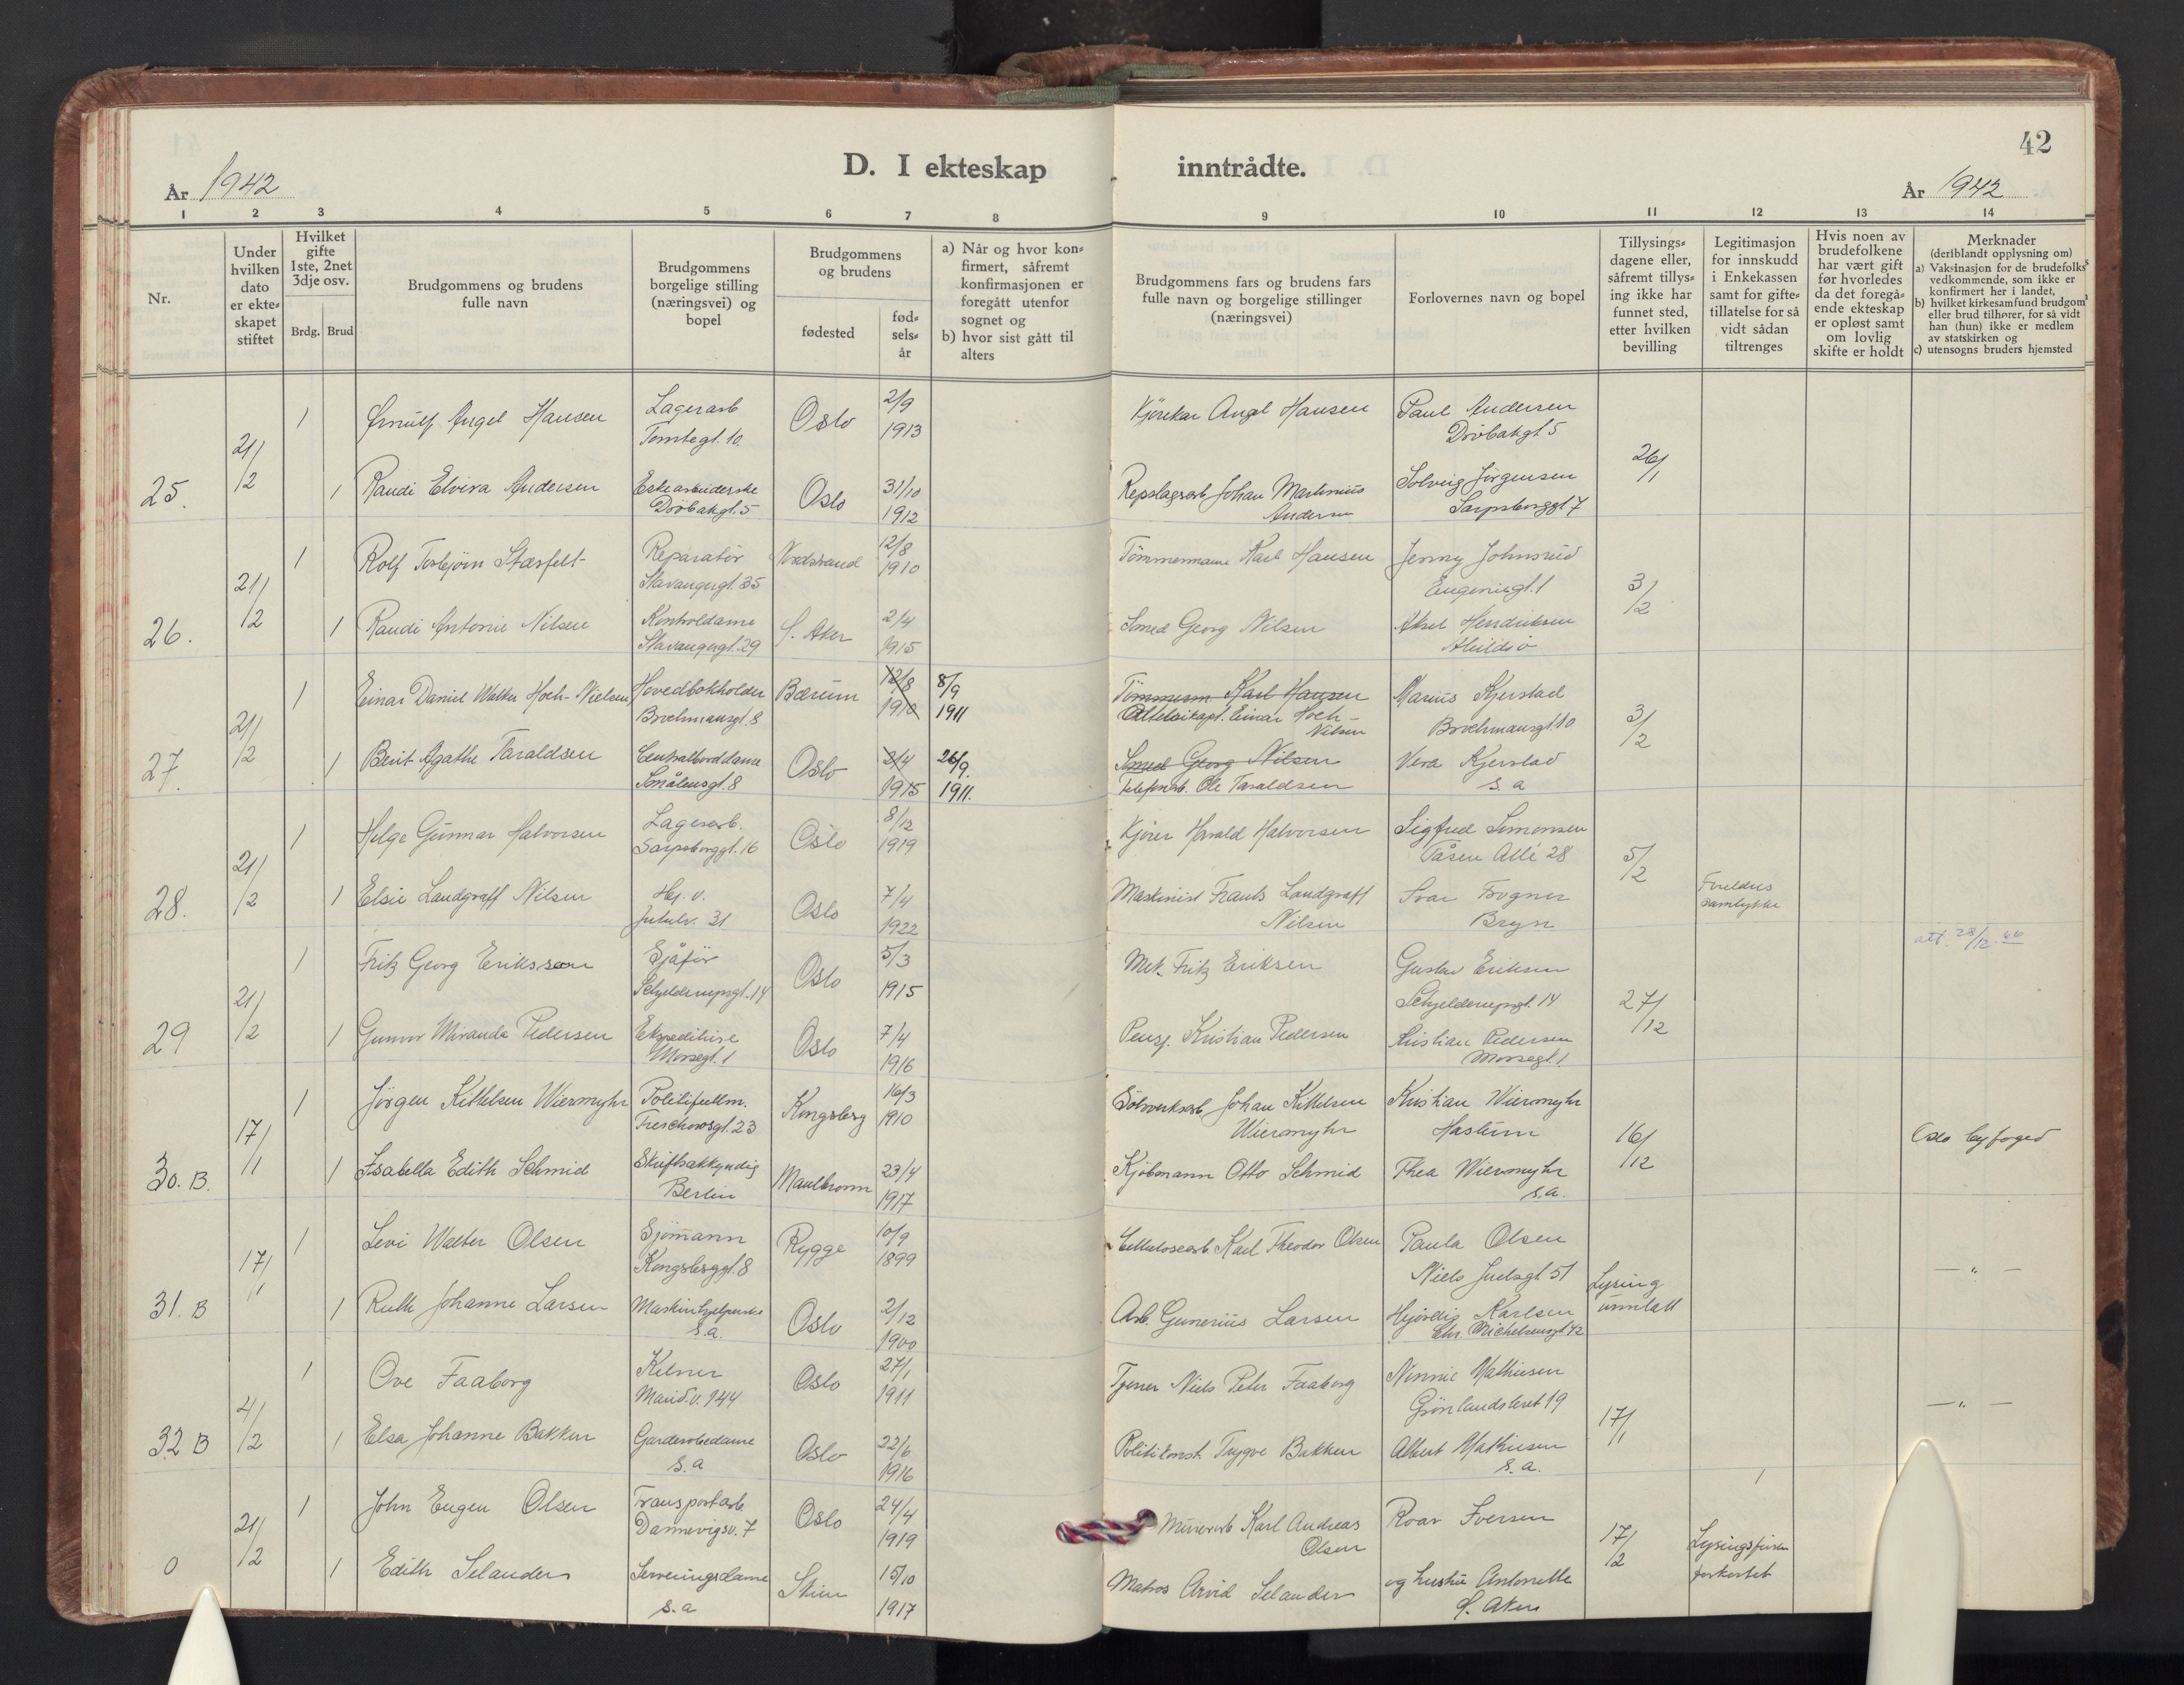 42
D. I ekteskap inntrådte.
År 1942
År 1942
1 2 3 4 5 6 7 8 9 10 11 12 13 14
Nr.
Under hvilken dato er ekte- skapet stiftet
Hvilket gifte 1ste, 2net 3dje osv.
Brdg. Brud
Brudgommens og brudens fulle navn
Brudgommens borgelige stilling (næringsvei) og bopel
Brudgommens og brudens
fødested
fød- sels- år
a) Når og hvor kon- firmert, såfremt konfirmasjonen er foregått utenfor sognet og
b) hvor sist gått til alters
Brudgommens fars og brudens fars fulle navn og borgelige stillinger (næringsvei)
Forlovernes navn og bopel
Tillysings- dagene eller, såfremt tillys- ing ikke har funnet sted, etter hvilken bevilling
Legitimasjon for innskudd i Enkekassen samt for gifte- tillatelse for så vidt sådan tiltrenges
Hvis noen av brudefolkene har vært gift før hvorledes da det foregå- ende ekteskap er opløst samt om lovlig skifte er holdt
Merknader
(deriblandt opplysning om)
a) Vaksinasjon for de brudefolks vedkommende, som ikke er konfirmert her i landet,
b) hvilket kirkesamfund brudgom eller brud tilhører, for så vidt han (hun) ikke er medlem av statskirken og
c) utensogns bruders hjemsted
25. 21/2 26/1
1 Ørnulf Angel Hansen Lagerarb Tomtegt. 10. Oslo 2/9 1913 Kjørekar Angel Hansen Paul Andersen Drøbakgt 5
1 Randi Elvira Andersen Eskearbeiderske Drøbakgt. 5 Oslo 31/10 1912 Repslagerarb Johan Martinius Andersen Solveig Jørgensen Sarpsborggt 7
26. 21/2 3/2
1 Rolf Torbjørn Starfelt Reparatør Stavangergt. 35 Nordstrand 12/8 1910 Tømmermann Karl Hansen Jenny Johnsrud Eugeniegt. 1
1 Randi Antonie Nilsen Kontroldame Stavangergt. 29 Ø. Aker 2/4 1915 Smed Georg Nilsen Aksel Hendriksen Abildsø
27. 21/2 3/2
1 Einar Daniel Walter Hoch-Nielsen Hovedbokholder Brochmansgt. 8 Bærum 12/8 1910 8/9 1911 Tømmerm Karl Hansen Einar Hoch-Nilsen Marius Kjerstad Brochmansgt. 10
1 Berit Agathe Taraldsen Centralborddame Smålensgt. 8 Oslo 2/4 1915 26/9. 1911. Smed Georg Nilsen Telefonarb. Ole Taraldsen Vera Kjerstad s. a
28. 21/2 5/2
1 Helge Gunnar Halvorsen Lagerarb. Sarpsborggt. 16 Oslo 8/12 1919 Kjører Harald Halvorsen Sigfred Simonsen Tåsen Allé 28
1 Elsie Landgraff Nilsen Hj. v. Jutulv. 31 Oslo 7/4 1922 Maskinist Frants Landgraff Nilsen Ivar Trogner Bryn Foreldres samtykke
29 21/2 27/12 att. 28/12.46
1 Fritz Georg Eriksson Sjåfør Schjelderupsgt. 14 Oslo 5/3 1915 Mek. Fritz Eriksen Gustav Eriksen Schjelderupsgt. 14
1 Gunvor Miranda Pedersen Ekspeditrise Morsegt. 1 Oslo 7/4 1916 Pensj. Kristian Pedersen Kristian Pedersen Morsegt. 1
30. B. 17/1 16/12 Oslo byfoged
1 Jørgen Kittelsen Wiermyhr Politifullm. Treschowsgt. 23 Kongsberg 16/3 1910 Sølvverksarb. Johan Kittelsen Wiermyhr Kristian Wiermyhr Haslum
1 Isabella Edith Schmid Skriftsakkyndig Berlin Maulbronn 23/4 1917 Kjøbmann Otto Schmid Thea Wiermyhr s. a.
31. B 17/1 Lysing unnlatt — „ —
1 Levi Walter Olsen Sjømann Kongsberggt. 8 Rygge 10/9 1899 Cellulosearb. Karl Theodor Olsen Paula Olsen Niels Juelsgt 51
1 Ruth Johanne Larsen Maskinhjelperske s. a. Oslo 2/12 1900 Arb. Gunerius Larsen Hjørdis Karlsen Chr. Michelsensgt 42
32 B 4/2 17/1 — „ —
1 Ove Faaborg Kelner Marid.v. 144 Oslo 27/1 1911 Tjener Niels Peter Faaborg Ninnie Mathiesen Grønlandsleret 19
1 Elsa Johanne Bakken Garderobedame s. a Oslo 22/6 1916 Politikonst. Trygve Bakken Albert Mathiesen s. a.
0 21/2 17/2 Lysingsfristen forkortet
1 John Eugen Olsen Transportarb Dannevigsv. 7 Oslo 24/4 1919 Murerarb Karl Andreas Olsen Roar Iversen
1 Edith Selander Serveringsdame s. a 15/10 1917 Matros Arvid Selander og hustru Antonette Ø. Aker